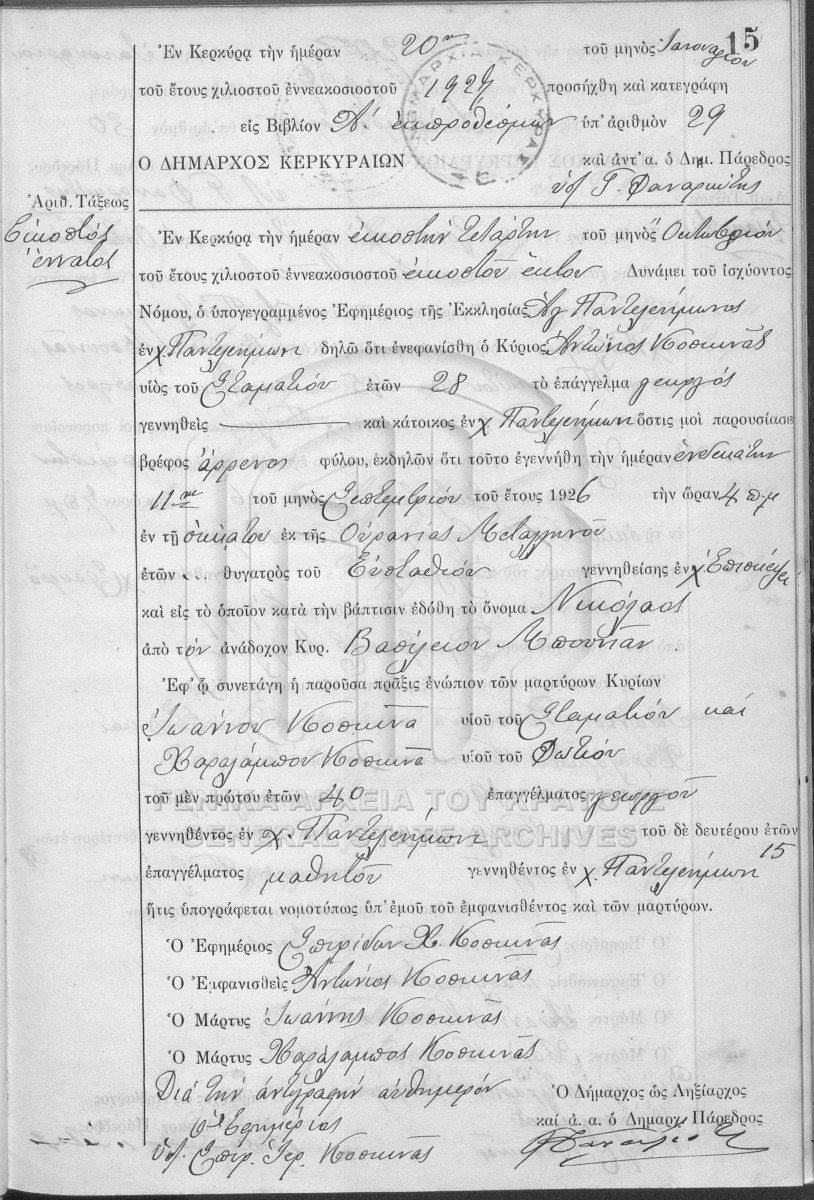 15
Ἐν Κερκύρᾳ τὴν ἡμέραν 20ην τοῦ μηνὸς Ἰανουαρίου
τοῦ ἔτους χιλιοστοῦ ἐννεακοσιοστοῦ 1927 προσήχθη καὶ κατεγράφη
εἰς Βιβλίον Α΄. ἐκπροθέσμων ὑπ' ἀριθμὸν 29
Ο ΔΗΜΑΡΧΟΣ ΚΕΡΚΥΡΑΙΩΝ καὶ ἀντ' α. ὁ Δημ. Πάρεδρος
Γ. Φαναριώτης
Ἀριθ. Τάξεως
Εἰκοστός
ἔννατος
Ἐν Κερκύρᾳ τὴν ἡμέραν εἰκοστὴν τετάρτην τοῦ μηνὸς Ὀκτωβρίου
τοῦ ἔτους χιλιοστοῦ ἐννεακοσιοστοῦ εἰκοστοῦ ἕκτου Δυνάμει τοῦ ἰσχύοντος
Νόμου, ὁ ὑπογεγραμμένος Ἐφημέριος τῆς Ἐκκλησίας Ἁγ Παντελεήμωνος
ἐν χ. Παντελεήμων δηλῶ ὅτι ἐνεφανίσθη ὁ Κύριος Ἀντώνιος Κοσκινᾶς
υἱὸς τοῦ Σταματίου ἐτῶν 28 τὸ ἐπάγγελμα γεωργός
γεννηθεὶς καὶ κάτοικος ἐν χ Παντελεήμων ὅστις μοὶ παρουσίασε
βρέφος ἄρρενος φύλου, ἐκδηλῶν ὅτι τοῦτο ἐγεννήθη τὴν ἡμέραν ἑνδεκάτην
11ην τοῦ μηνὸς Σεπτεμβρίου τοῦ ἔτους 1926 τὴν ὥραν 4 π.μ
ἐν τῇ οἰκίᾳ του ἐκ τῆς Οὐρανίας Μεταλληνοῦ
ἐτῶν ... θυγατρὸς τοῦ Εὐσταθίου γεννηθείσης ἐν χ Ἐπισκέψει
καὶ εἰς τὸ ὁποῖον κατὰ τὴν βάπτισιν ἐδόθη τὸ ὄνομα Νικόλαος
ἀπὸ τὸν ἀνάδοχον Κυρ. Βασίλειον Μπούναν.
Ἐφ' ᾧ συνετάγη ἡ παροῦσα πρᾶξις ἐνώπιον τῶν μαρτύρων Κυρίων
Ἰωάννου Κοσκινᾶ υἱοῦ τοῦ Σταματίου καὶ
Χαραλάμπου Κοσκινᾶ υἱοῦ τοῦ Φωτίου
τοῦ μὲν πρώτου ἐτῶν 40 ἐπαγγέλματος γεωργοῦ
γεννηθέντος ἐν χ. Παντελεήμων τοῦ δὲ δευτέρου ἐτῶν 15
ἐπαγγέλματος μαθητοῦ γεννηθέντος ἐν χ. Παντελεήμων
ἥτις ὑπογράφεται νομοτύπως ὑπ' ἐμοῦ τοῦ ἐμφανισθέντος καὶ τῶν μαρτύρων.
Ὁ Ἐφημέριος Σπυρίδων Χ. Κοσκινᾶς
Ὁ Ἐμφανισθεὶς Ἀντώνιος Κοσκινᾶς
Ὁ Μάρτυς Ἰωάννης Κοσκινᾶς
Ὁ Μάρτυς Χαράλαμπος Κοσκινᾶς
Διὰ τὴν ἀντιγραφὴν αὐθημερόν
Ὁ Ἐφημέριος
Σπυρ. Ἱερ. Κοσκινᾶς
Ὁ Δήμαρχος ὡς Ληξίαρχος
καί ἀ. α. ὁ Δημαρχ. Πάρεδρος
ΔΗΜΑΡΧΙΑ ΚΕΡΚΥΡΑΣ
ΓΕΝΙΚΑ ΑΡΧΕΙΑ ΤΟΥ ΚΡΑΤΟΥΣ
GENERAL STATE ARCHIVES